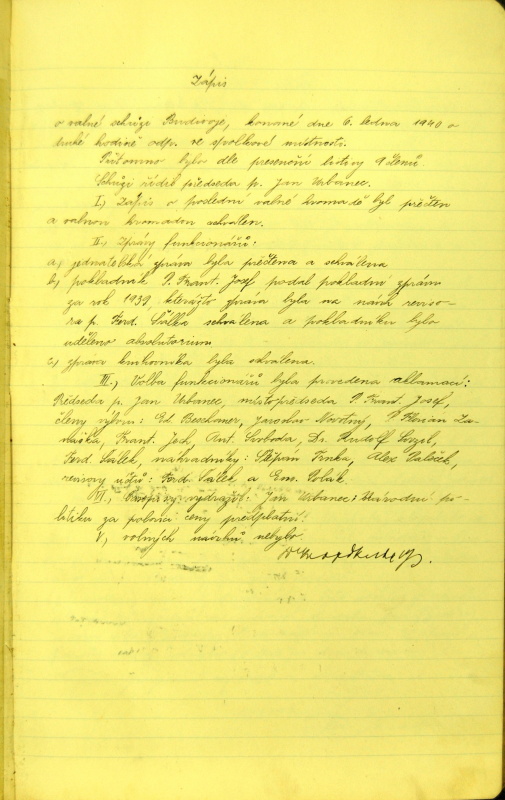 Zápis
o valné schůzi Budivoje, konané dne 6. ledna 1940 o
druhé hodině odp. ve spolkové místnosti.
Přítomno bylo dle presenční listiny 9 členů.
Schůzi řídil předseda p. Jan Urbanec.
I., Zápis o poslední valné hromadě byl přečten
a valnou hromadou schválen.
II., Zprávy funkcionářů:
a, jednatelská zpráva byla přečtena a schválena
b, pokladník P. Frant. Josef podal pokladní zprávu
za rok 1939, kterážto zpráva byla na návrh reviso-
ra p. Ferd. Sálka schválena a pokladníku bylo
uděleno absolutorium
c, zpráva knihovníka byla schválena.
III., Volba funkcionářů byla provedena aklamací:
Předseda p. Jan Urbanec, místopředseda P. Frant. Josef,
členy výboru: Ed. Beschaner, Jaroslav Novotný, P. Florian
Frant. Jech, Ant. Svoboda, Dr. Rudolf
Ferd. Sálek, náhradníky: Štěpán Trnka, Alex Paleček,
revisory účtů: Ferd. Sálek a Em. Polák
VI., Časopisy vydražil: Jan Urbanec: Národní po-
litiku za polovici ceny předplatní.
V, volných návrhů nebylo.